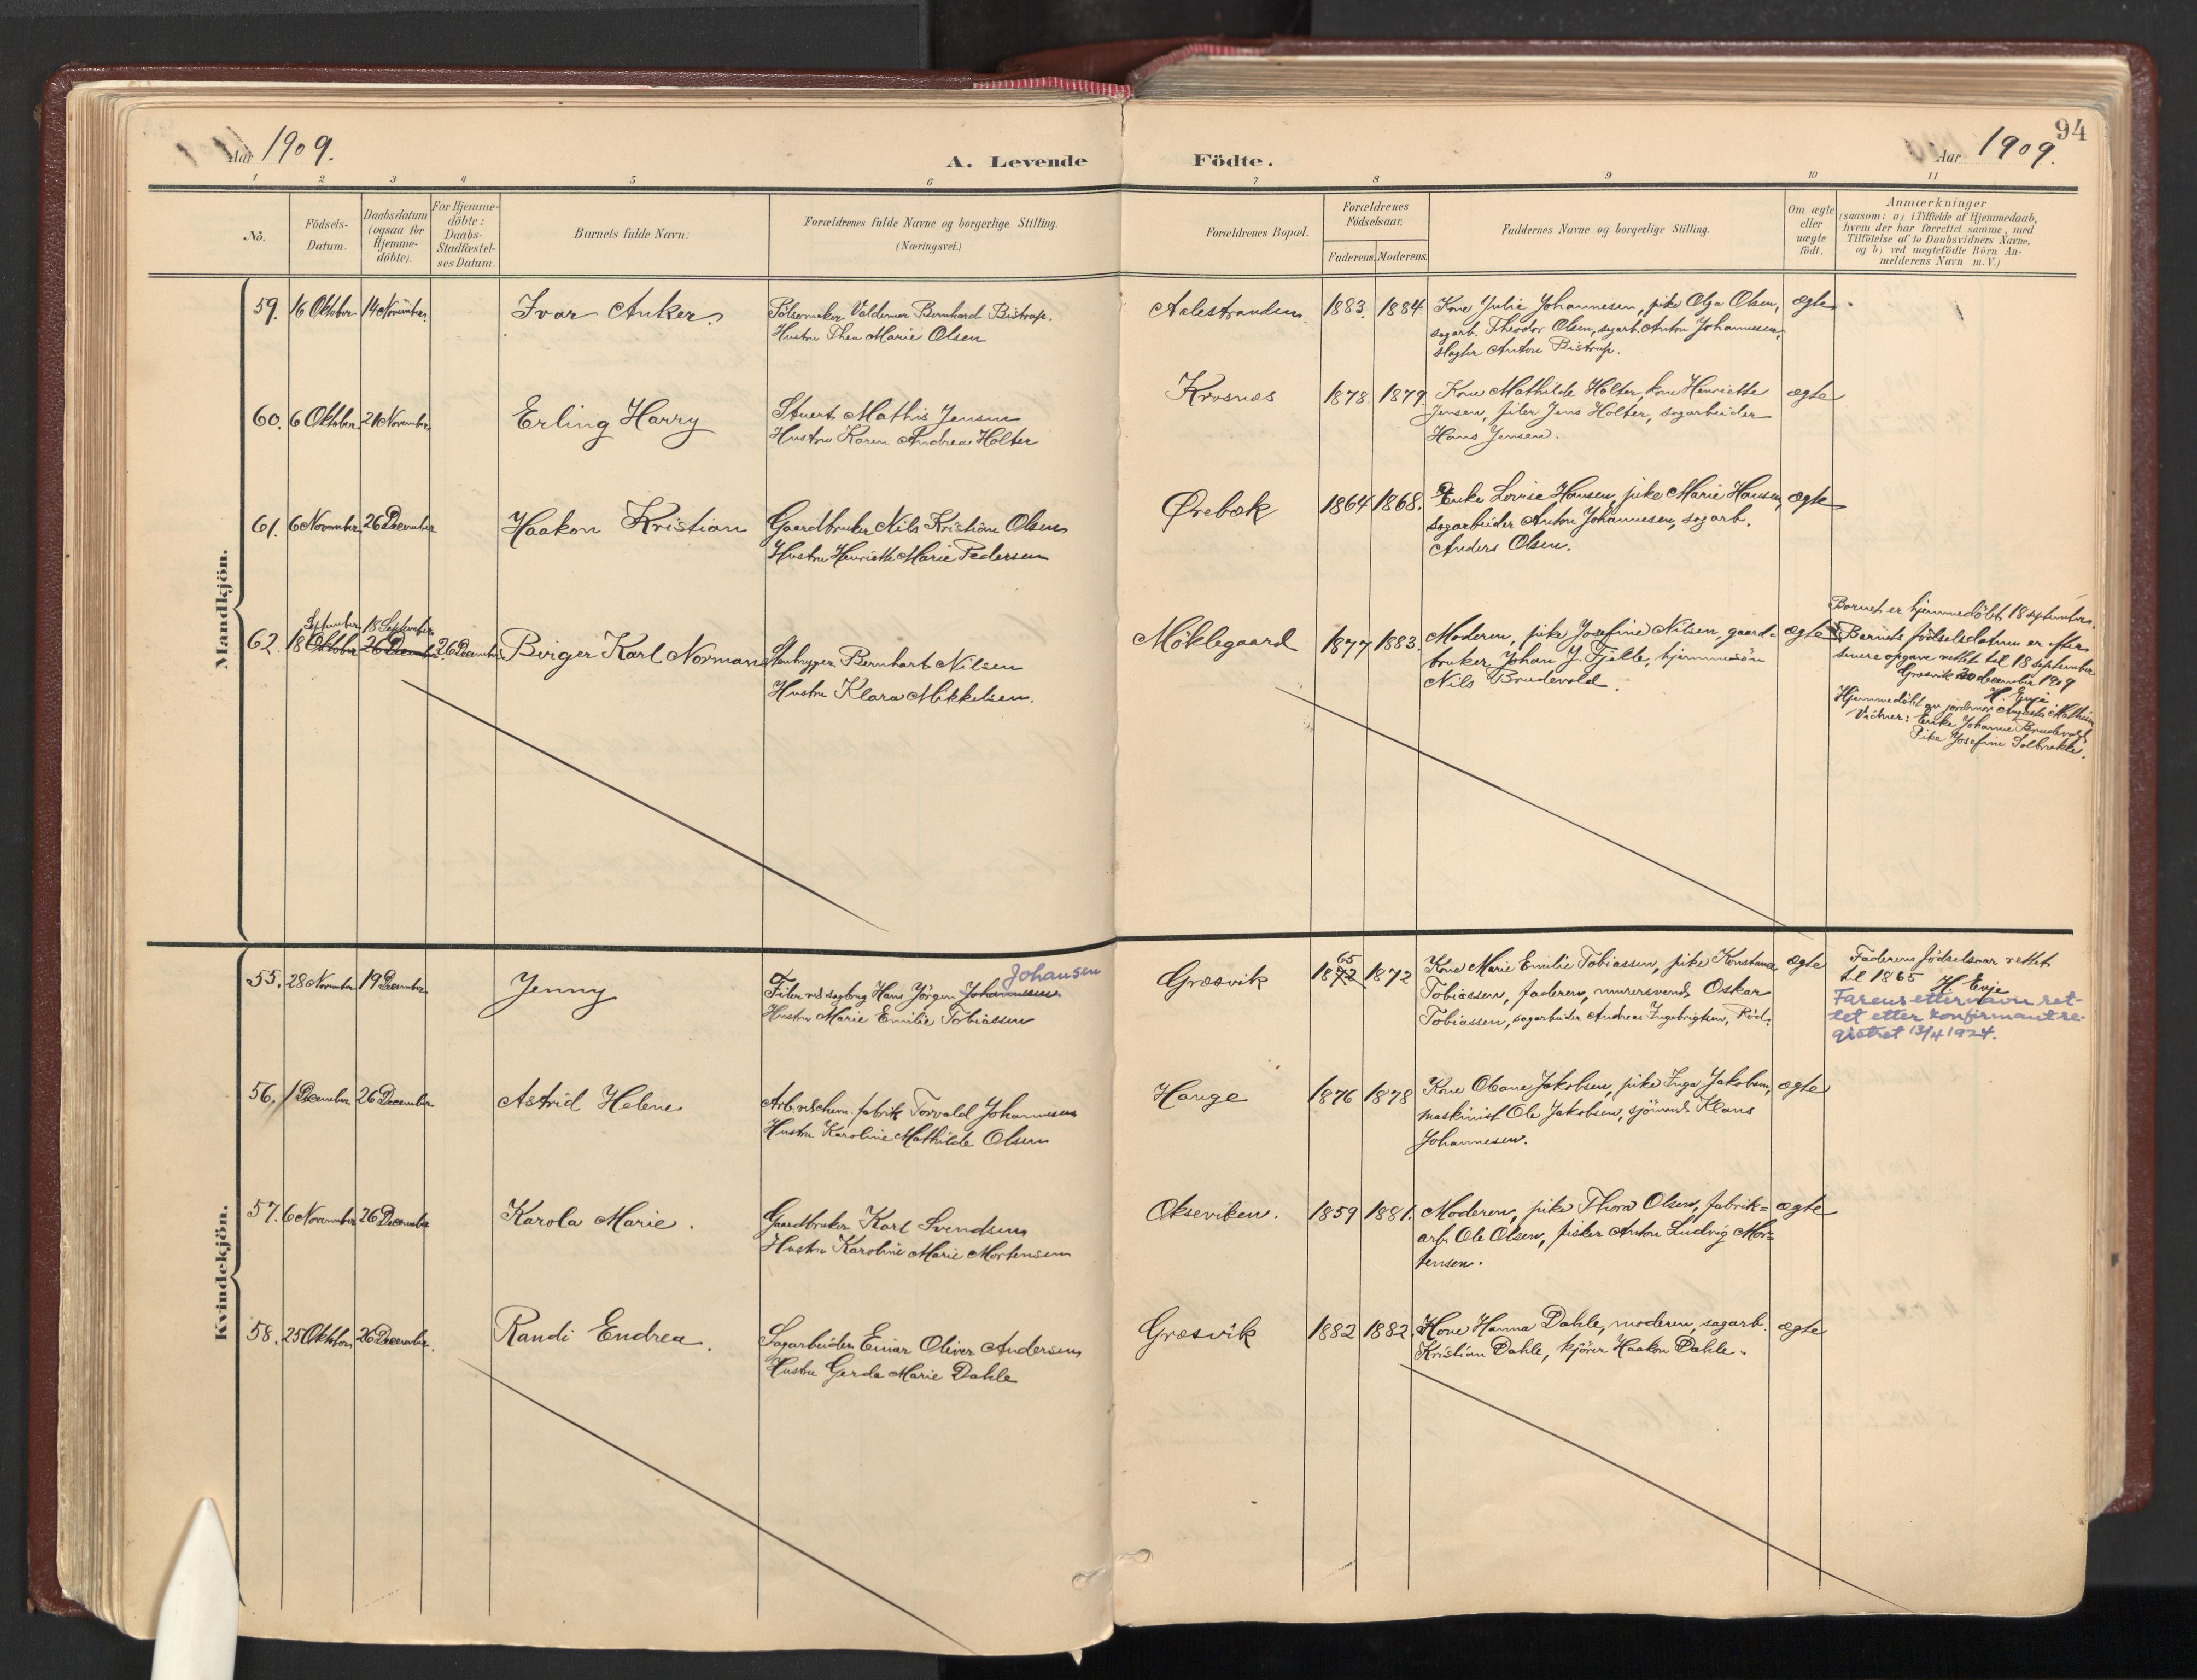 94
Aar 1909.
A. Levende Födte.
Aar 1909.
1 2 3 4 5 6 7 8 9 10 11
No.
Födsels-
Datum.
Daabsdatum
(ogsaa for
Hjemme-
döbte).
For Hjemme-
döbte:
Daabs-
Stadfæstel-
ses Datum.
Barnets fulde Navn.
Forældrenes fulde Navne og borgerlige Stilling.
(Næringsvei.)
Forældrenes Bopæl.
Forældrenes
Födselsaar.
Faderens. Moderens.
Faddernes Navne og borgerlige Stilling.
Om ægte
eller
uægte
födt.
Anmærkninger
(saasom: a) i Tilfælde af Hjemmedaab,
hvem der har forrettet samme, med
Tilföielse af to Daabsvidners Navne,
og b) ved uægtefödte Börn An-
melderens Navn m. V.)
Mandkjön.
59. 16 Oktober 14 November Ivar Anker.
Pölsemaker Valdemar Bernhard Bistrup.
Hustru Thea Marie Olsen
Aalestranden 1883. 1884.
Kone Julie Johannesen, pike Olga Olsen,
sagarb. Theodor Olsen, sagarb. Anton Johannesen,
slagter Anton Bistrup.
ægte
60. 6 Oktober 21 November Erling Harry
Stuert Mathis Jensen
Hustru Karen Andrea Holter
Krosnæs 1878. 1879.
Kone Mathilde Holter, kone Henriette
Jensen, filer Jens Holter, sagarbeider
Hans Jensen.
ægte
61. 6 November 26 December Haakon Kristian
Gaardbruker Nils Kristian Olsen
Hustru Henriette Marie Pedersen
Örebæk 1864 1868.
Enke Lovise Hansen, pike Marie Hansen,
sagarbeider Anton Johannesen, sagarb.
Anders Olsen.
ægte
September 18 September
62. 18 Oktober 26 December 26 December Birger Karl Norman
Stenhugger Bernhart Nilsen
Hustru Klara Mikkelsen.
Möklegaard 1877 1883.
Moderen, pike Josefine Nilsen, gaard=
bruker Johan J. Fjelle, hjemmesön
Nils Brudevold.
ægte
Barnet er hjemmedöbt 18 september.
Barnets födselsdatum er efter
senere opgave rettet til 18 september
Græsvik 30 december 1909
H. Evje.
Hjemmedöbt av jordmor Augusta Mathisen
Vidner: Enke Johanne Brudevold
Pike Josefine Solbrække.
Kvindekjön.
55. 28 November 19 December Jenny
Johansen
Filer ved sagbrug Hans Jörgen Johannessen
Hustru Marie Emilie Tobiassen
Græsvik
65
1872 1872
Kone Marie Emilie Tobiassen, pike Konstance
Tobiassen, faderen, murersvend Oskar
Tobiassen, sagarbeider Andreas Ingebrigtsen, Röd.
ægte
Faderens födselsaar rettet
til 1865 H Evje
Farens etternavn ret-
tet etter konfirmantre-
gistret 13/4 1924.
56. 1 December 26 December Astrid Helene
Arb. ved chem. fabrik Torvald Johannesen
Hustru Karoline Mathilde Olsen
Hauge 1876 1878
Kone Obane Jakobsen, pike Inga Jakobsen,
maskinist Ole Jakobsen, sjömand Klaus
Johannesen.
ægte
57. 6 November 26 December Karola Marie.
Gaardbruker Karl Svendsen
Hustru Karoline Marie Mortensen
Okseviken. 1859 1881.
Moderen, pike Thora Olsen, fabrik=
arb. Ole Olsen, fisker Anton Ludvig Mor=
tensen.
ægte
58. 25 Oktober 26 December. Randi Endrea.
Sagarbeider Einar Oliver Andersen
Hustru Gerda Marie Dahle
Græsvik 1882 1882.
Kone Hanna Dahle, moderen, sagarb.
Kristian Dahle, kjörer Haakon Dahle.
ægte